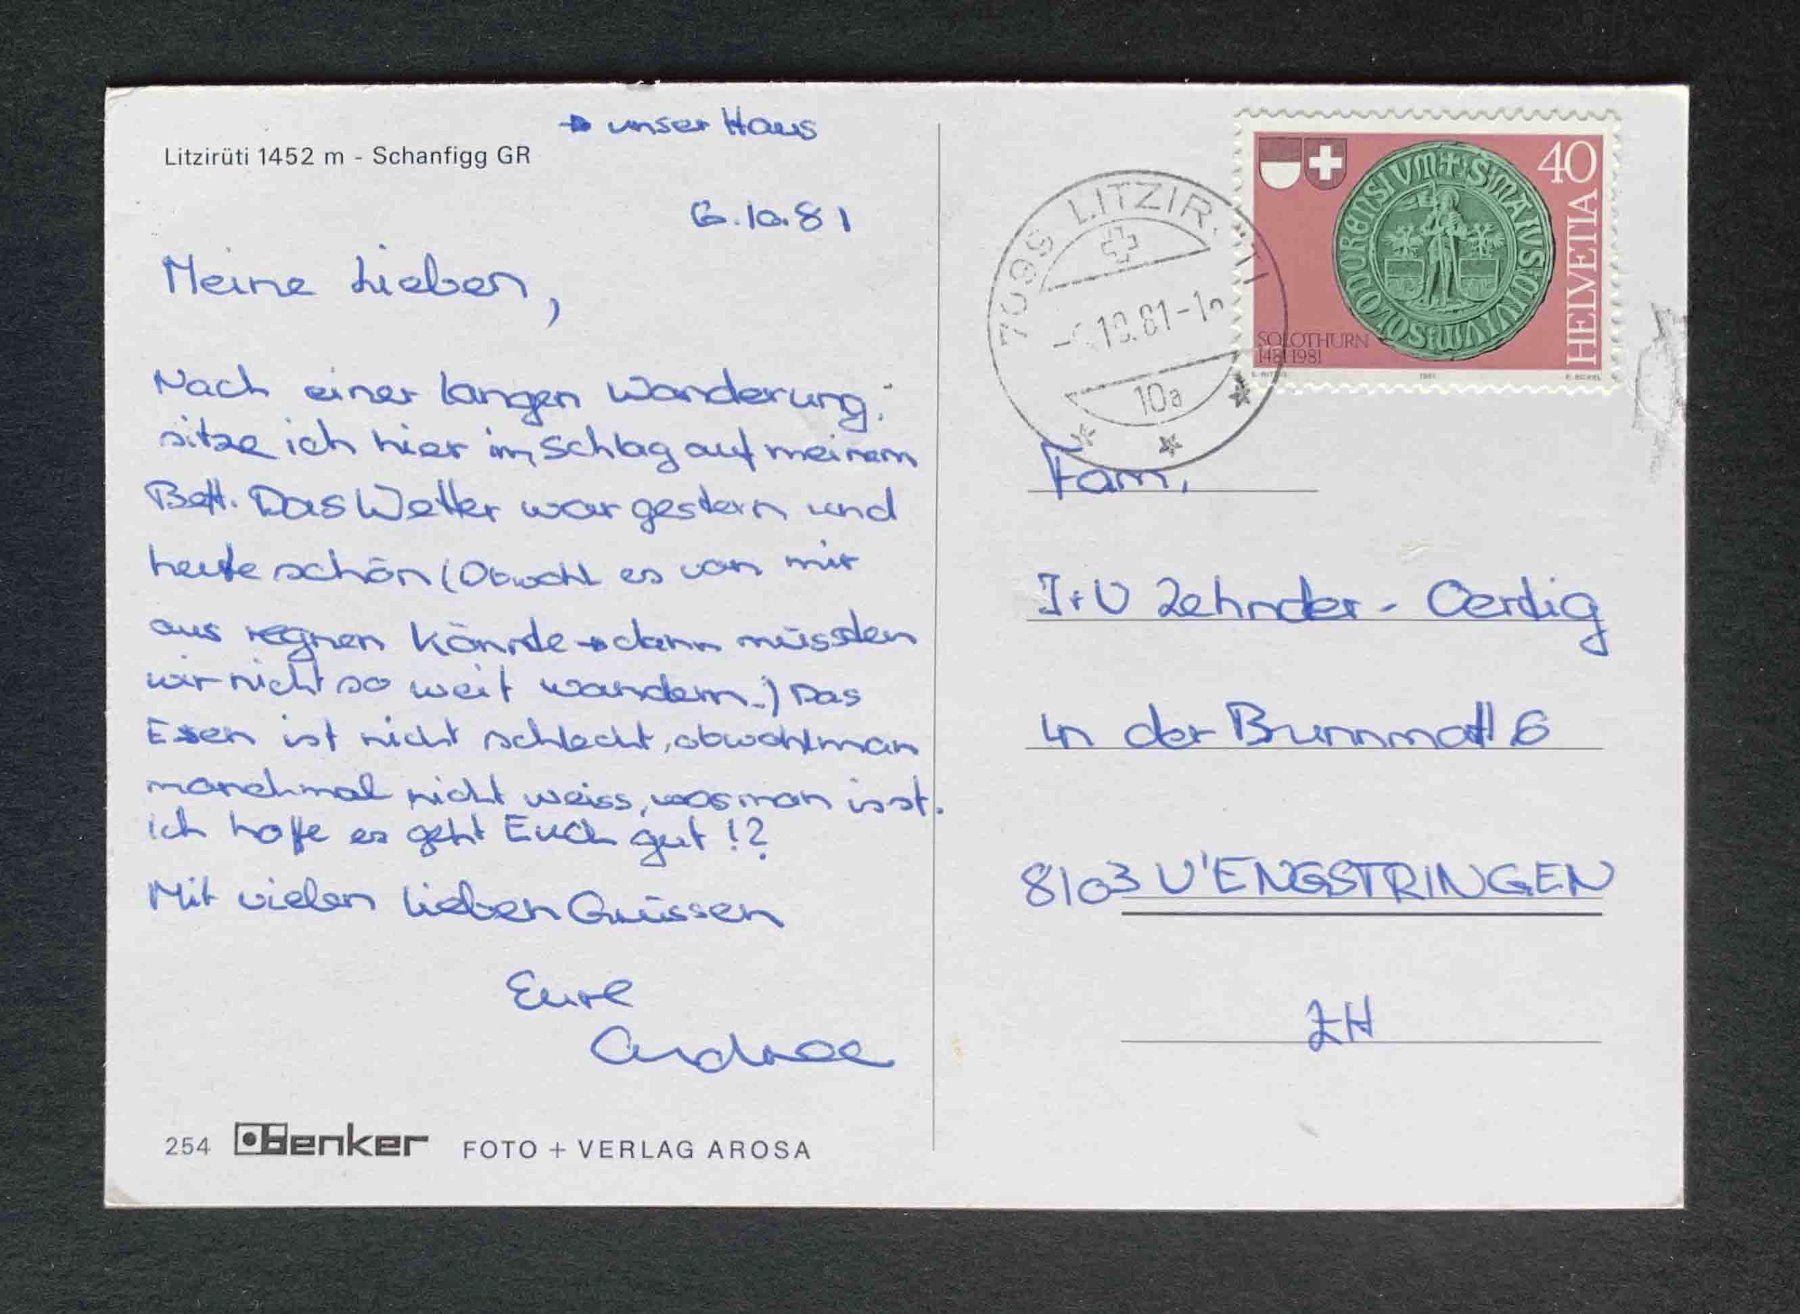 → unser Haus
Litzirüti 1452 m - Schanfigg GR
6.10.81
Meine Lieben,
Nach einer langen Wanderung,
sitze ich hier im Schlag auf meinem
Bett. Das Wetter war gestern und
heute schön (Obwohl es von mir
aus regnen könnte → dann müssten
wir nicht so weit wandern.) Das
Essen ist nicht schlecht, obwohl man
manchmal nicht weiss, was man isst.
Ich hoffe es geht Euch gut!?
Mit vielen lieben Grüssen
Eure
Andrea
254 Benker FOTO + VERLAG AROSA
7099 LITZIRÜTI
10.81-1
10a
40
HELVETIA
SOLOTHURN
1481 1981
Fam.
J+U Zehnder-Oerdig
in der Brunnmatt 6
8103 U'ENGSTRINGEN
ZH